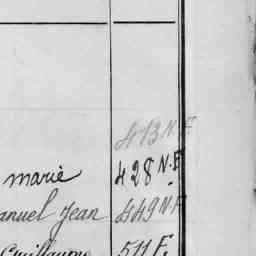 413 N.F
marie 428 N.F
anuel Jean 449 N.F
Guillaume 511 F.